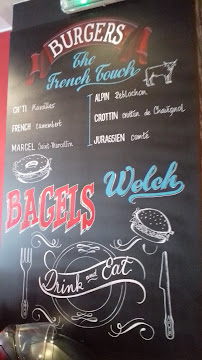 BURGERS
The
French Touch
CH'TI Maroilles
FRENCH Camembert
MARCEL Saint Marcellin
ALPIN Reblochon
CROTTIN crottin de Chavignol
JURASSIEN comté
BAGELS
Welch
Drink and Eat